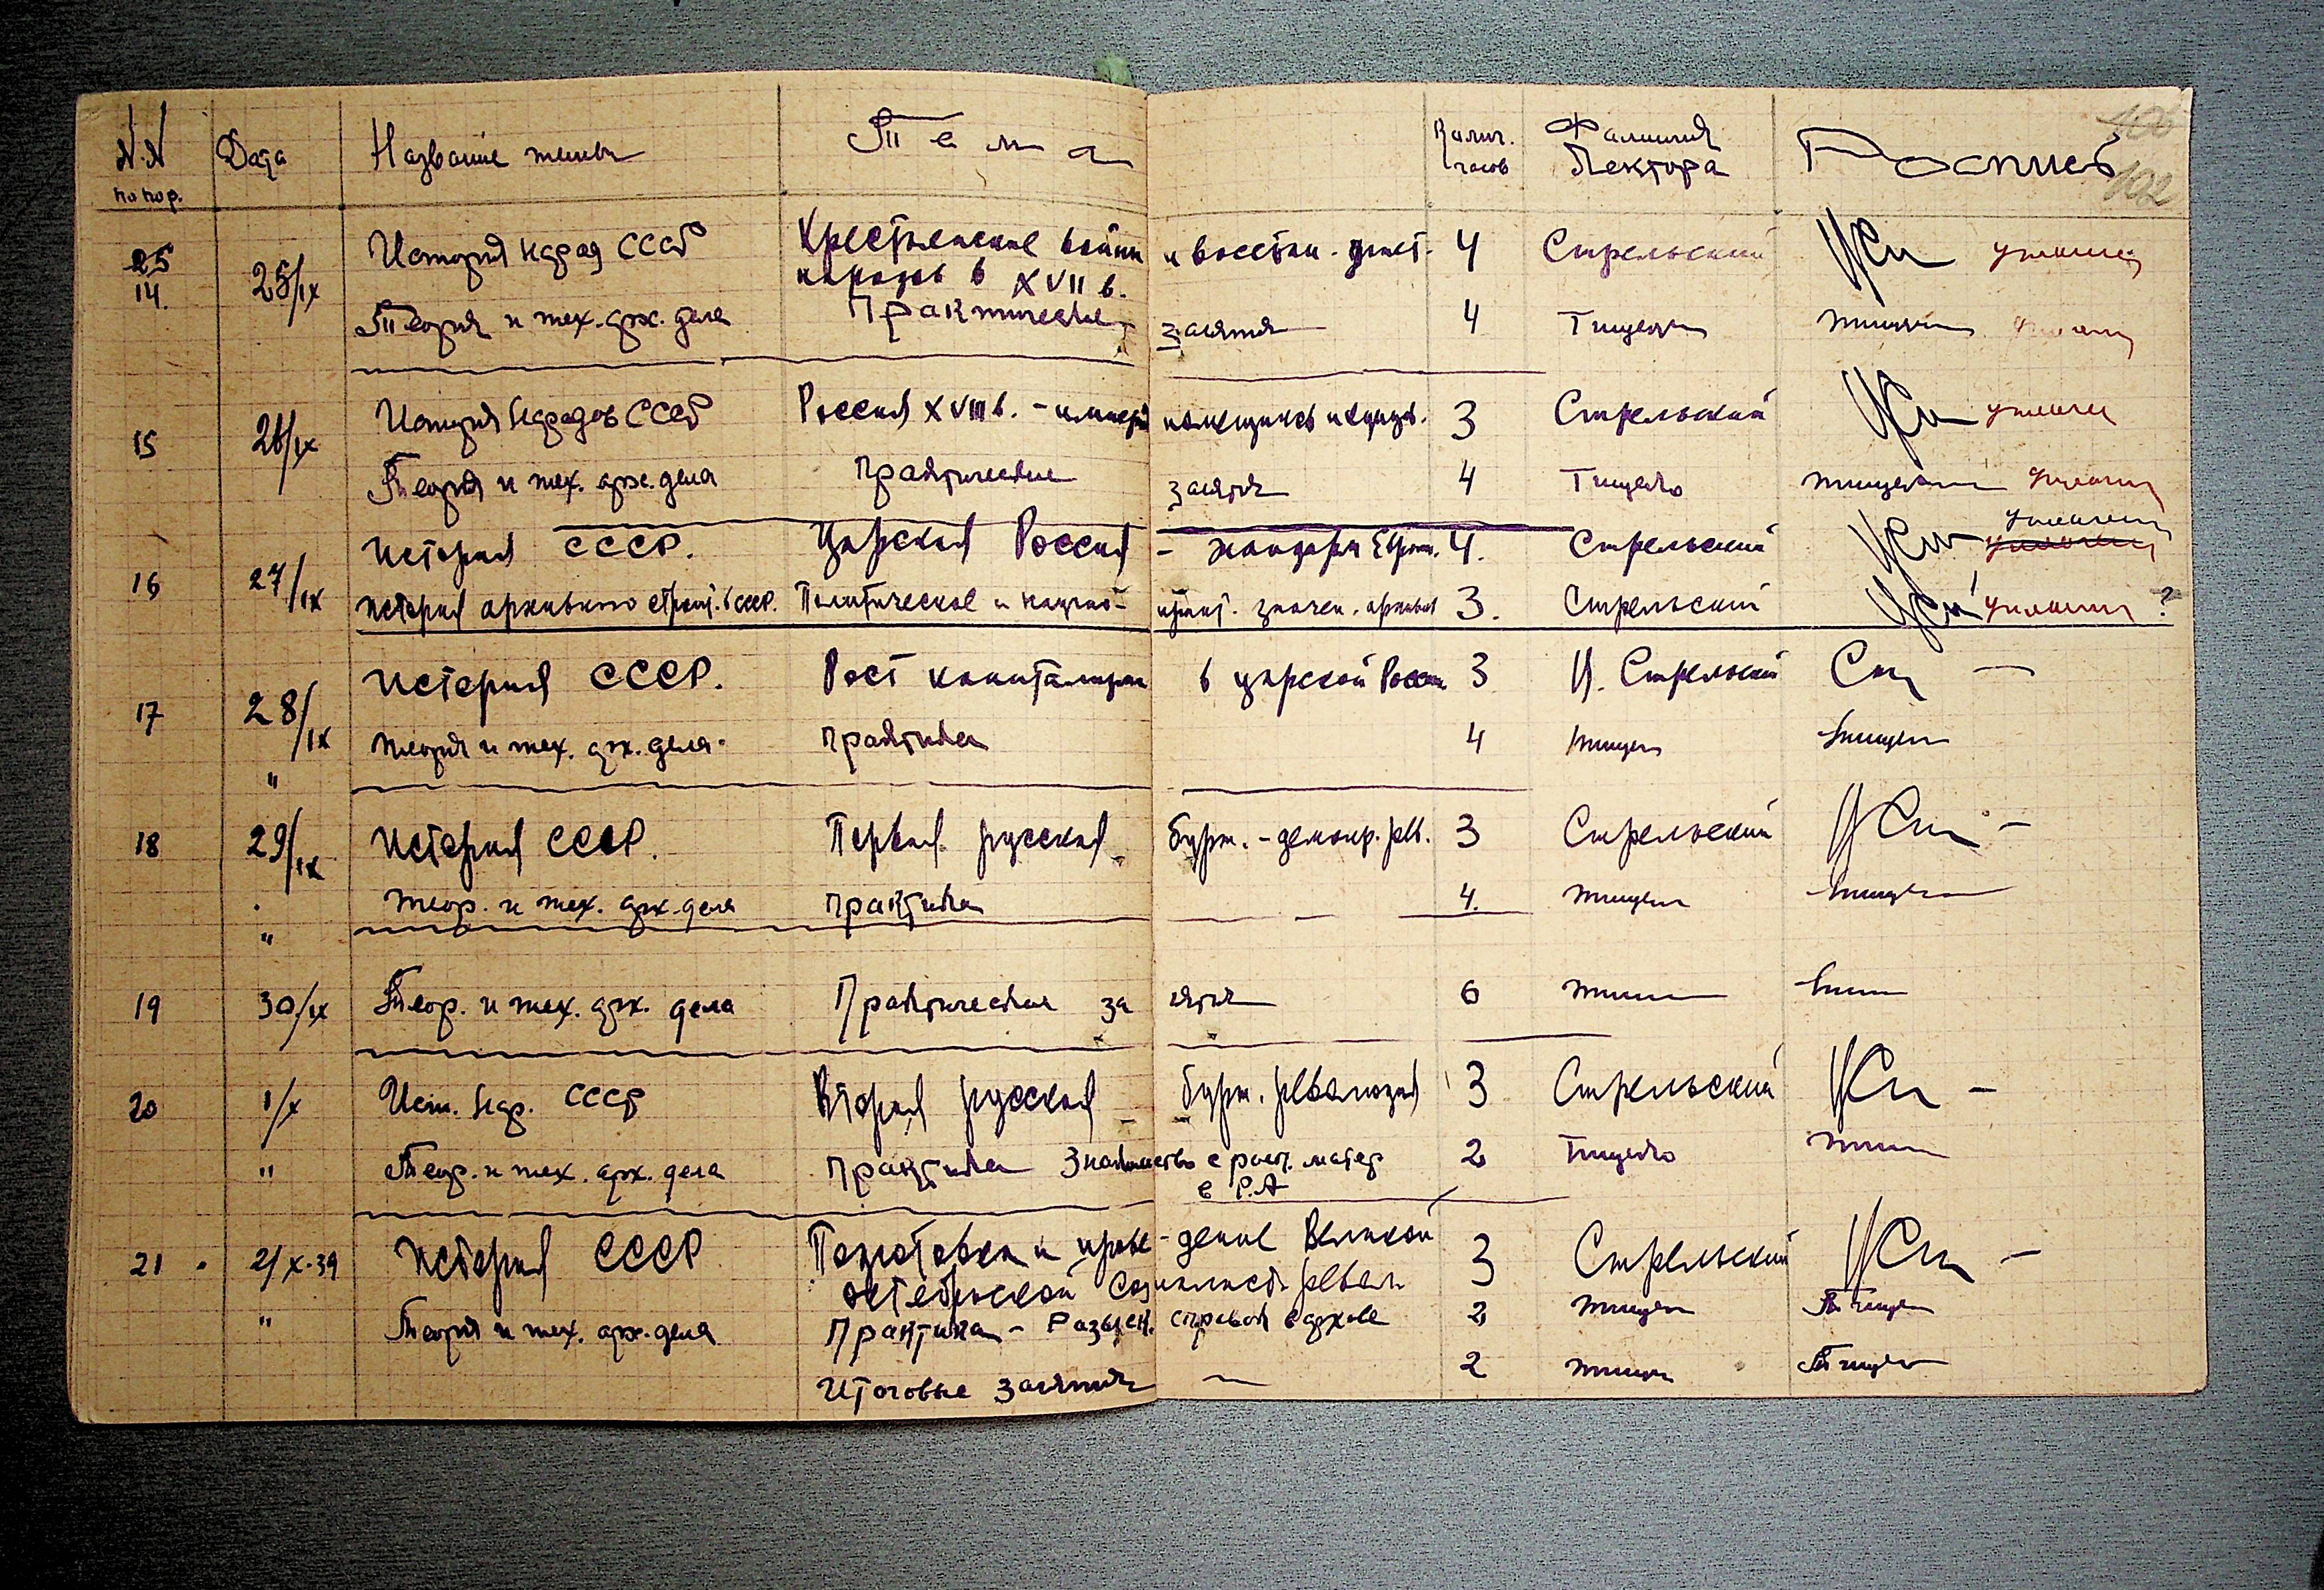 №№ по пор. Дата Название темы Тема Колич. часов Фамилия Лектора Роспись
102
25
14. 25/IX История народ СССР Крестьянские войны и восстан. 4 Стрельский уплочен
народов в XVII в.
Теория и тех. арх. дела Практические занятия 4 Тищенко
15 26/IX История народов СССР Россия XVIII в. - империя помещиков и купцов. 3 Стрельский уплочен
Теория и тех. арх. дела Практические занятия 4 Тищенко уплочен
16 27/IX История СССР. Царская Россия - жандарм Европ. 4. Стрельский уплочен
История архивного строит. в СССР. Политическое и научно- практ. значен. архивов 3. Стрельский уплочен ?
17 28/IX История СССР. Рост капитализма в царской России 3 Стрельский —
" Теория и тех. арх. дела. Практика 4
18 29/IX История СССР. Первая русская бурж.-демокр. рев. 3 Стрельский —
" Теор. и тех. арх. дела Практика 4.
19 30/IX Теор. и тех. арх. дела Практические занятия 6
20 1/X Ист. нар. СССР Вторая русская бурж. революция 3 Стрельский —
" Теор. и тех. арх. дела Практика Знакомство с матер 2 Тищенко
в Р.А
21. 2/X-39 История СССР Подготовка и прове-дение Великой 3 Стрельский —
октябрьской социалист. револ
" Теория и тех. арх. дела Практика - справок в архиве 2
Итоговые занятия — 2